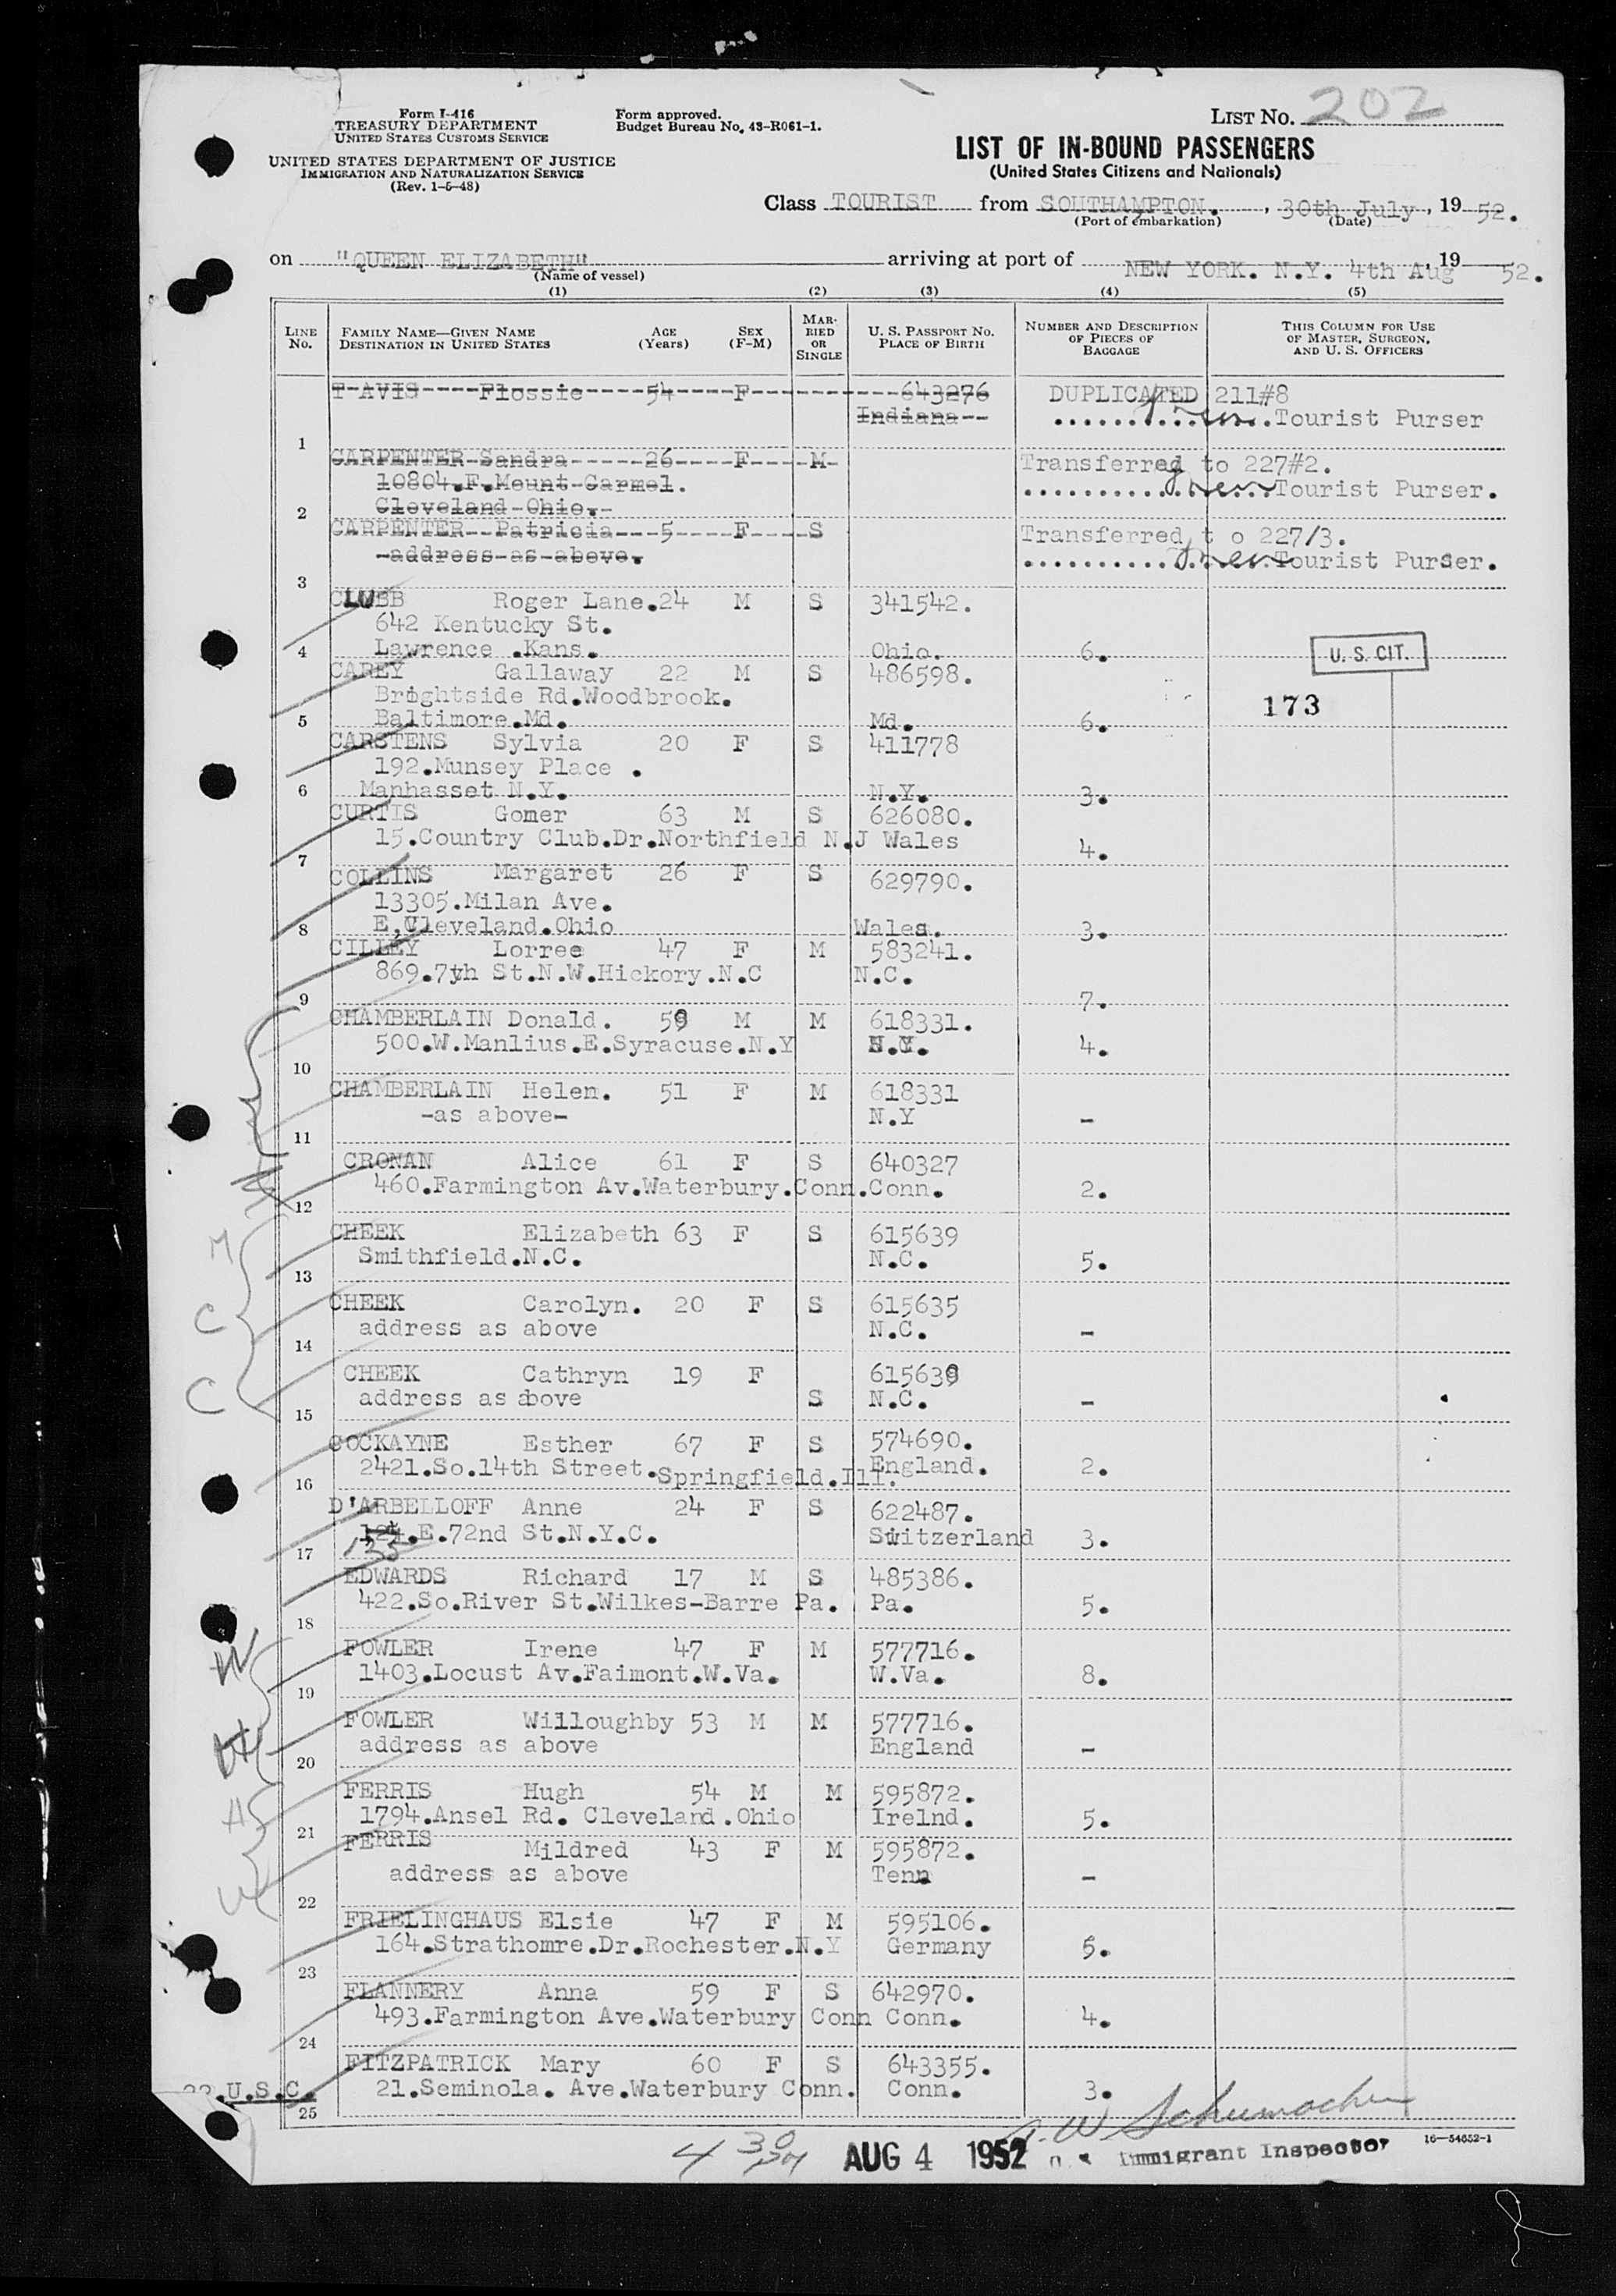 Form I-416
TREASURY DEPARTMENT
UNITED STATES CUSTOMS SERVICE
UNITED STATES DEPARTMENT OF JUSTICE
IMMIGRATION AND NATURALIZATION SERVICE
(Rev. 1-5-48)
Form approved.
Budget Bureau No. 43-R061-1.
LIST NO. 202
LIST OF IN-BOUND PASSENGERS
(United States Citizens and Nationals)
Class TOURIST from SOUTHAMPTON. , 30th July , 19 52.
(Port of embarkation) (Date)
on "QUEEN ELIZABETH" arriving at port of NEW YORK. N.Y. 4th Aug , 19 52.
(Name of vessel)
(1) (2) (3) (4) (5)
LINE NO. FAMILY NAME—GIVEN NAME DESTINATION IN UNITED STATES AGE (Years) SEX (F-M) MARRIED OR SINGLE U. S. PASSPORT NO. PLACE OF BIRTH NUMBER AND DESCRIPTION OF PIECES OF BAGGAGE THIS COLUMN FOR USE OF MASTER, SURGEON, AND U. S. OFFICERS
T-AVIS----Flossie----54----F----------643276 DUPLICATED 211#8
Indiana-- Tourist Purser
1
CARPENTER-Sandra-----26----F----M- Transferred to 227#2.
10804.F.Mount-Carmel. Tourist Purser.
2 Cleveland-Ohio.-
CARPENTER--Patricia---5----F----S Transferred t o 227/3.
-address-as-above. Tourist Purser.
3
CLUBB Roger Lane. 24 M S 341542.
642 Kentucky St.
4 Lawrence .Kans. Ohio. 6. U. S. CIT.
CAREY Gallaway 22 M S 486598.
Brightside Rd.Woodbrook. 173
5 Baltimore.Md. Md. 6.
CARSTENS Sylvia 20 F S 411778
192.Munsey Place .
6 Manhasset N.Y. N.Y. 3.
CURTIS Gomer 63 M S 626080.
15.Country Club.Dr.Northfield N.J Wales
7 4.
COLLINS Margaret 26 F S 629790.
13305.Milan Ave.
8 E,Cleveland.Ohio Wales. 3.
CILLEY Lorree 47 F M 583241.
869.7th St.N.W.Hickory.N.C N.C.
9 7.
CHAMBERLAIN Donald. 59 M M 618331.
500.W.Manlius.E.Syracuse.N.Y N.Y. 4.
10
CHAMBERLAIN Helen. 51 F M 618331
-as above- N.Y -
11
CRONAN Alice 61 F S 640327
460.Farmington Av.Waterbury.Conn.Conn. 2.
12
CHEEK Elizabeth 63 F S 615639
Smithfield.N.C. N.C. 5.
13
CHEEK Carolyn. 20 F S 615635
address as above N.C. -
14
CHEEK Cathryn 19 F 615639
address as above S N.C. -
15
COCKAYNE Esther 67 F S 574690.
2421.So.14th Street.Springfield.Ill. England. 2.
16
D'ARBELLOFF Anne 24 F S 622487.
124.E.72nd St.N.Y.C. Switzerland 3.
17 133
EDWARDS Richard 17 M S 485386.
422.So.River St.Wilkes-Barre Pa. Pa. 5.
18
FOWLER Irene 47 F M 577716.
1403.Locust Av.Faimont.W.Va. W.Va. 8.
19
FOWLER Willoughby 53 M M 577716.
address as above England -
20
FERRIS Hugh 54 M M 595872.
1794.Ansel Rd. Cleveland.Ohio Irelnd. 5.
21
FERRIS Mildred 43 F M 595872.
address as above Tenn -
22
FRIELINGHAUS Elsie 47 F M 595106.
164.Strathomre.Dr.Rochester.N.Y Germany 5.
23
FLANNERY Anna 59 F S 642970.
493.Farmington Ave.Waterbury Conn Conn. 4.
24
FITZPATRICK Mary 60 F S 643355.
21.Seminola. Ave.Waterbury Conn. Conn. 3.
22.U.S.C.
25
W Schumacher
4 30 PM AUG 4 1952 Immigrant Inspector 16—54652-1